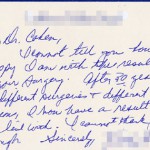 Dr. Cohen,
I cannot tell you how
happy I am with the results
your surgery. After 50 years
different surgeries & different
I now have a result
I cannot thank
Sincerely,